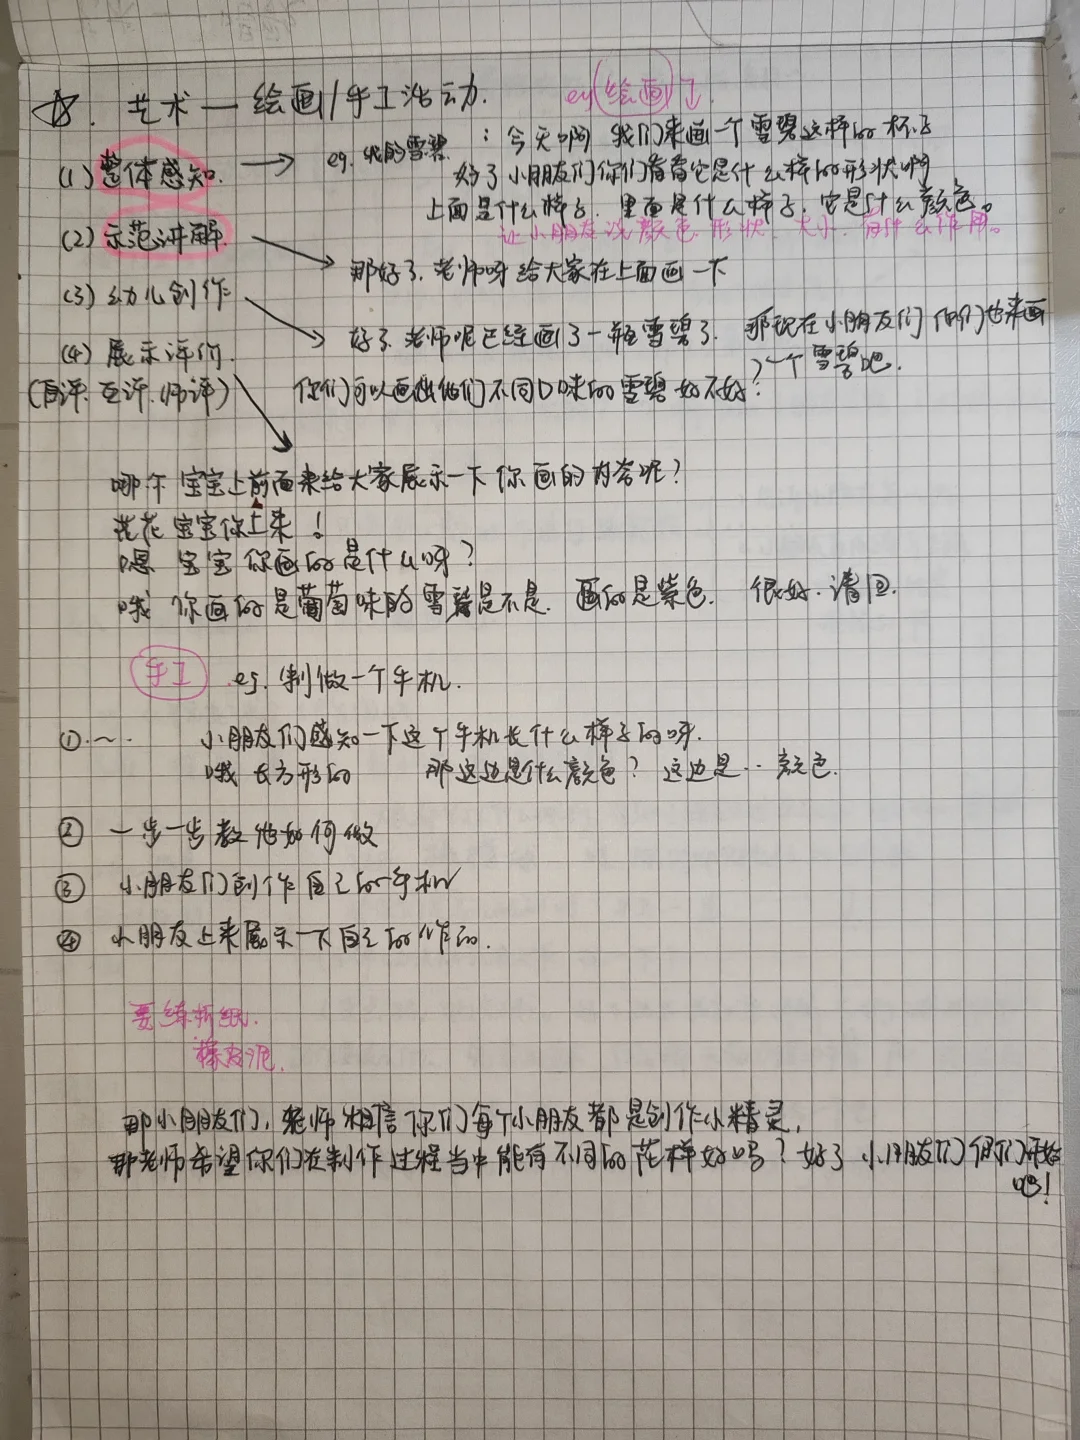 ☆. 艺术—绘画/手工活动.
eg(绘画)↓
(1) 整体感知. → eg. 我的雪碧. : 今天啊 我们来画一个雪碧这样的杯子
好了小朋友们你们看看它是什么样的形状啊
上面是什么样子. 里面是什么样子. 它是什么颜色。
让小朋友说颜色. 形状. 大小. 有什么作用。
(2) 示范讲解. → 那好了. 老师呀给大家在上面画一下
(3) 幼儿创作 → 好了. 老师呢已经画了一瓶雪碧了. 那现在小朋友们 你们也来画
一个雪碧吧.
(4) 展示评价.
(自评. 互评. 师评) 你们可以画出你们不同口味的雪碧好不好?
哪个宝宝上前面来给大家展示一下你画的内容呢?
花花宝宝你上来!
嗯 宝宝你画的是什么呀?
哦 你画的是葡萄味的雪碧是不是. 画的是紫色. 很好. 请回.
手工 eg. 制做一个手机.
①.~. 小朋友们感知一下这个手机长什么样子的呀.
哦 长方形的 那这边是什么颜色? 这边是‥颜色.
② 一步一步教他如何做
③ 小朋友们创作自己的手机
④ 小朋友上来展示一下自己的作品.
要练折纸.
橡皮泥.
那小朋友们, 老师相信你们每个小朋友都是创作小精灵,
那老师希望你们在制作过程当中能有不同的花样好吗? 好了 小朋友们 你们开始
吧!